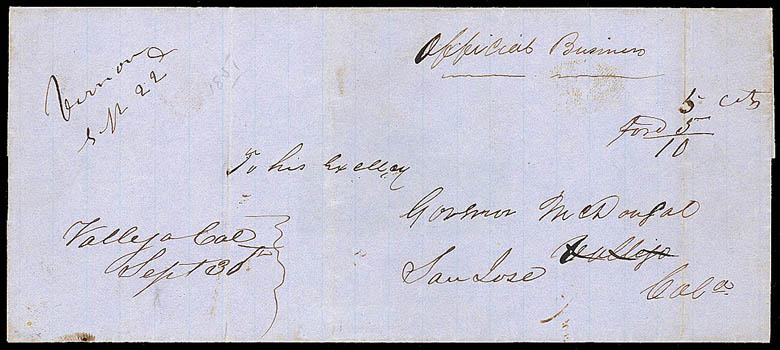 Official Business
Vernon
Sept 22
1851
5 cts
Ford 5
10
To his Excellcy
Governor McDougal
Vallejo
San Jose
Cala
Vallejo Cal
Sept 30th